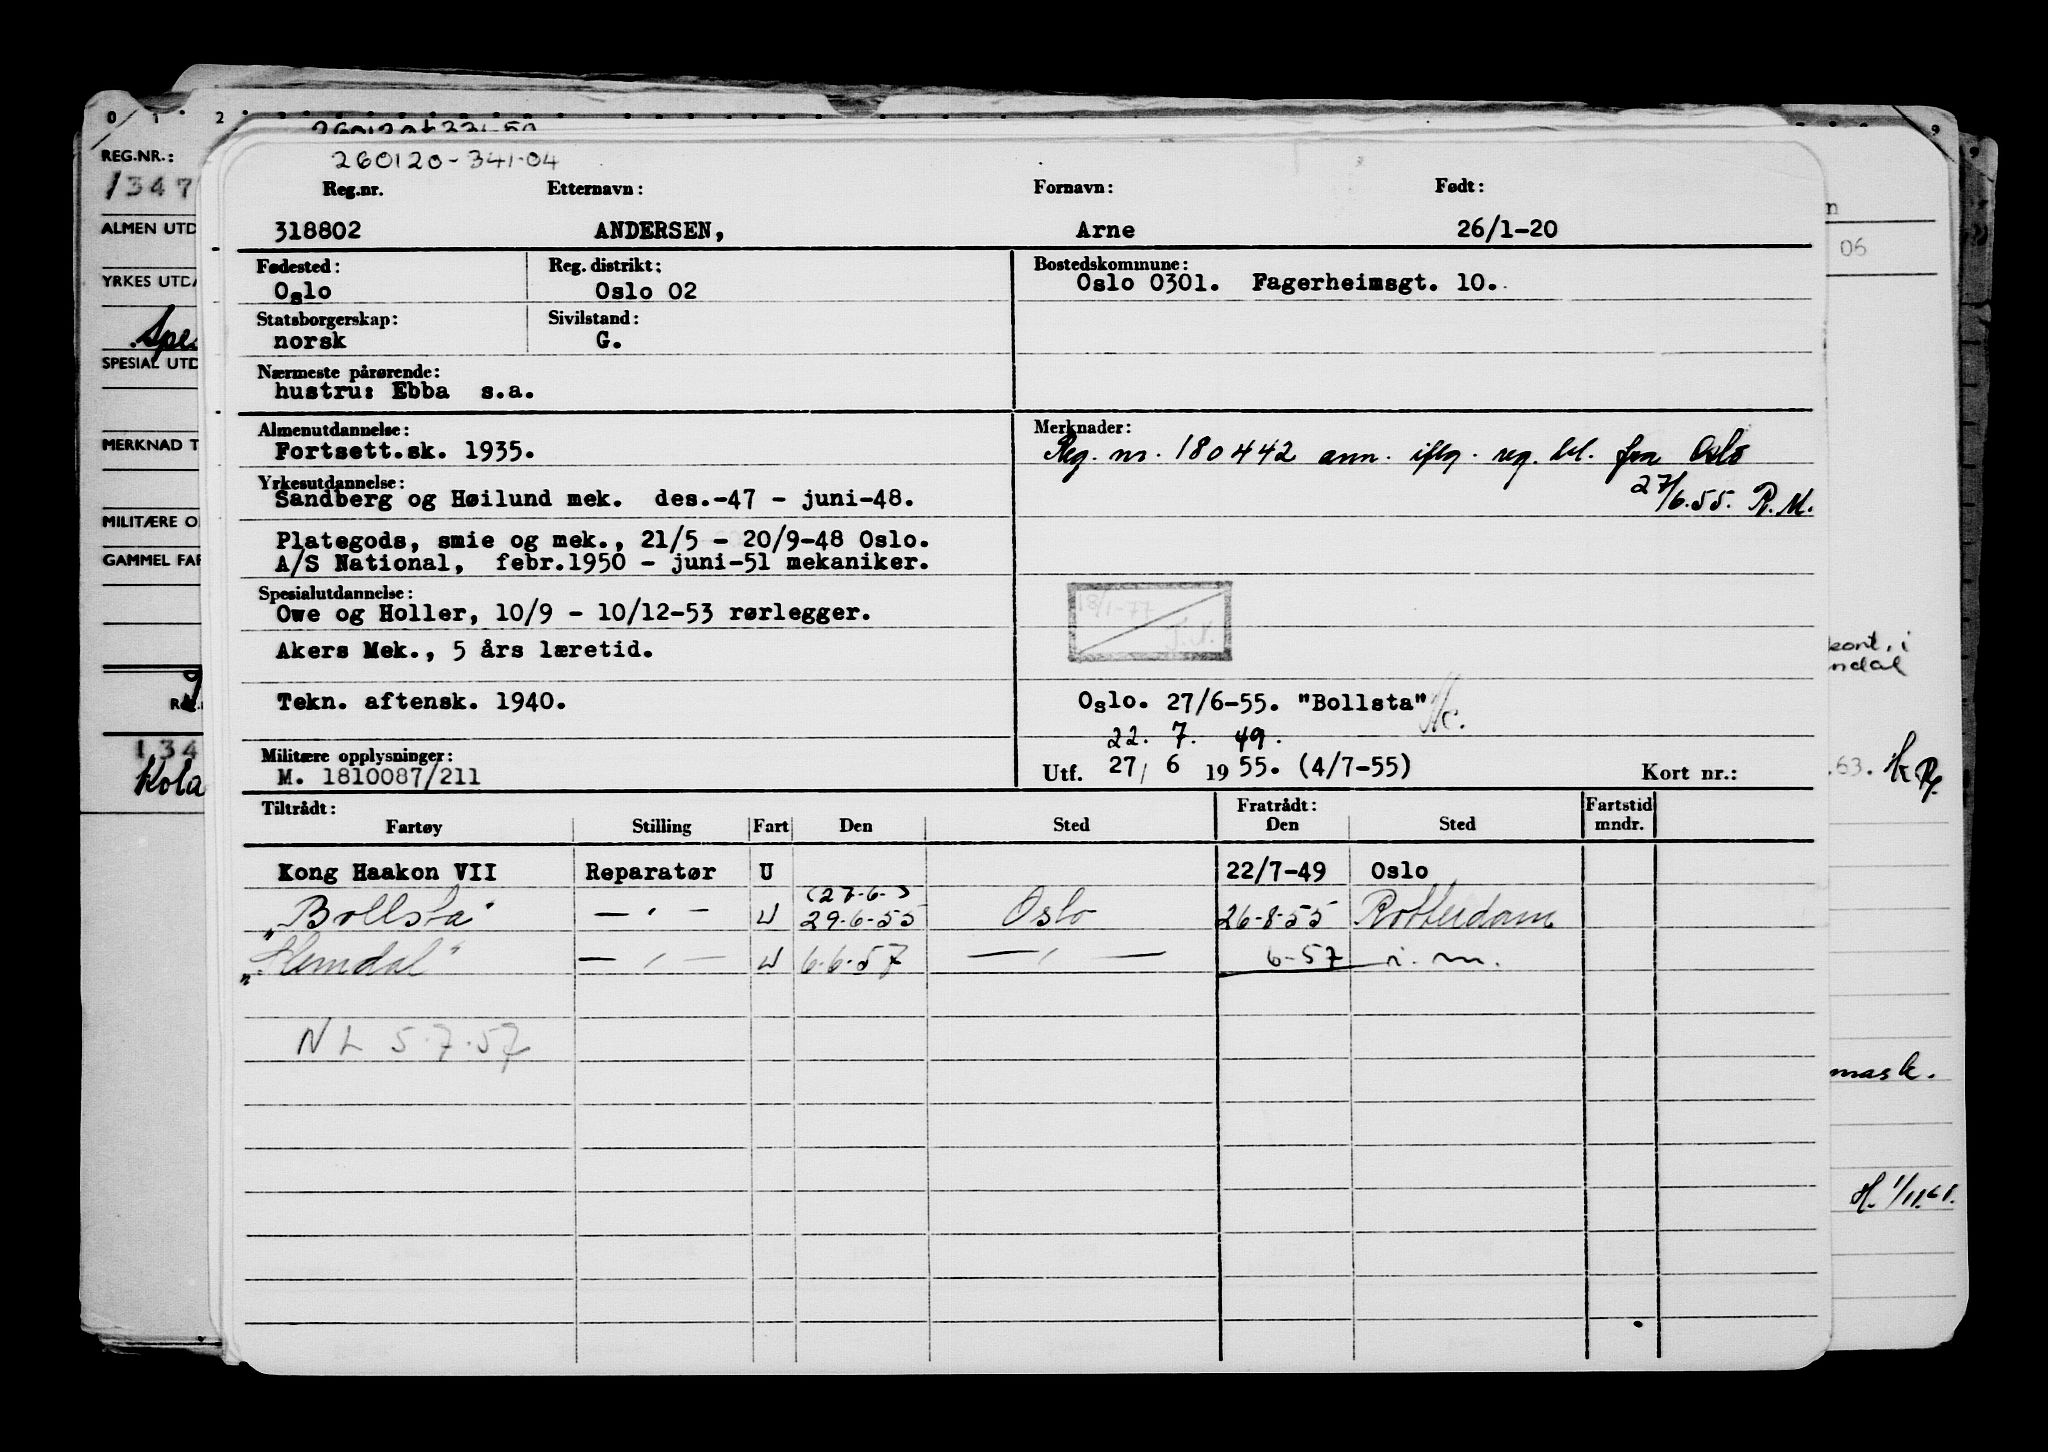 0 1 2
9
9
260120-341-04
REG.NR.:
1347
ALMEN UTD
YRKES UTDA
Spes
SPESIAL UTD
MERKNAD T
MILITÆRE O
GAMMEL FAR
134
Kola
Reg.nr. Etternavn: Fornavn: Født:
318802 ANDERSEN, Arne 26/1-20
Fødested: Reg. distrikt: Bostedskommune:
Oslo Oslo 02 Oslo 0301. Fagerheimsgt. 10.
Statsborgerskap: Sivilstand:
norsk G.
Nærmeste pårørende:
hustru: Ebba s.a.
Almenutdannelse: Merknader:
Fortsett.sk. 1935. Reg. nr. 180442 ann. iflg. reg. bl. fra Oslo
27/6.55. R.M.
Yrkesutdannelse:
Sandberg og Høilund mek. des.-47 - juni-48.
Plategods, smie og mek., 21/5 - 20/9-48 Oslo.
A/S National, febr.1950 - juni-51 mekaniker.
Spesialutdannelse:
Owe og Holler, 10/9 - 10/12-53 rørlegger.
18/1-77
J.N.
Akers Mek., 5 års læretid.
Tekn. aftensk. 1940. Oslo. 27/6-55. "Bollsta"
22. 7. 49.
Militære opplysninger:
M. 1810087/211 Utf. 27/6 1955. (4/7-55) Kort nr.:
Tiltrådt: Fratrådt: Fartstid
Fartøy Stilling Fart Den Sted Den Sted mndr.
Kong Haakon VII Reparatør U 22/7-49 Oslo
(27.6.)
"Bollsta" — " — U 29.6-55 Oslo 26-8-55 Rotterdam
"Hemdal" — " — U 6.6.57 — " — 6-57 i.m.
NL 5.7.57
06
kont. i
ndal
.63. H
mask.
H. 1/11.61.